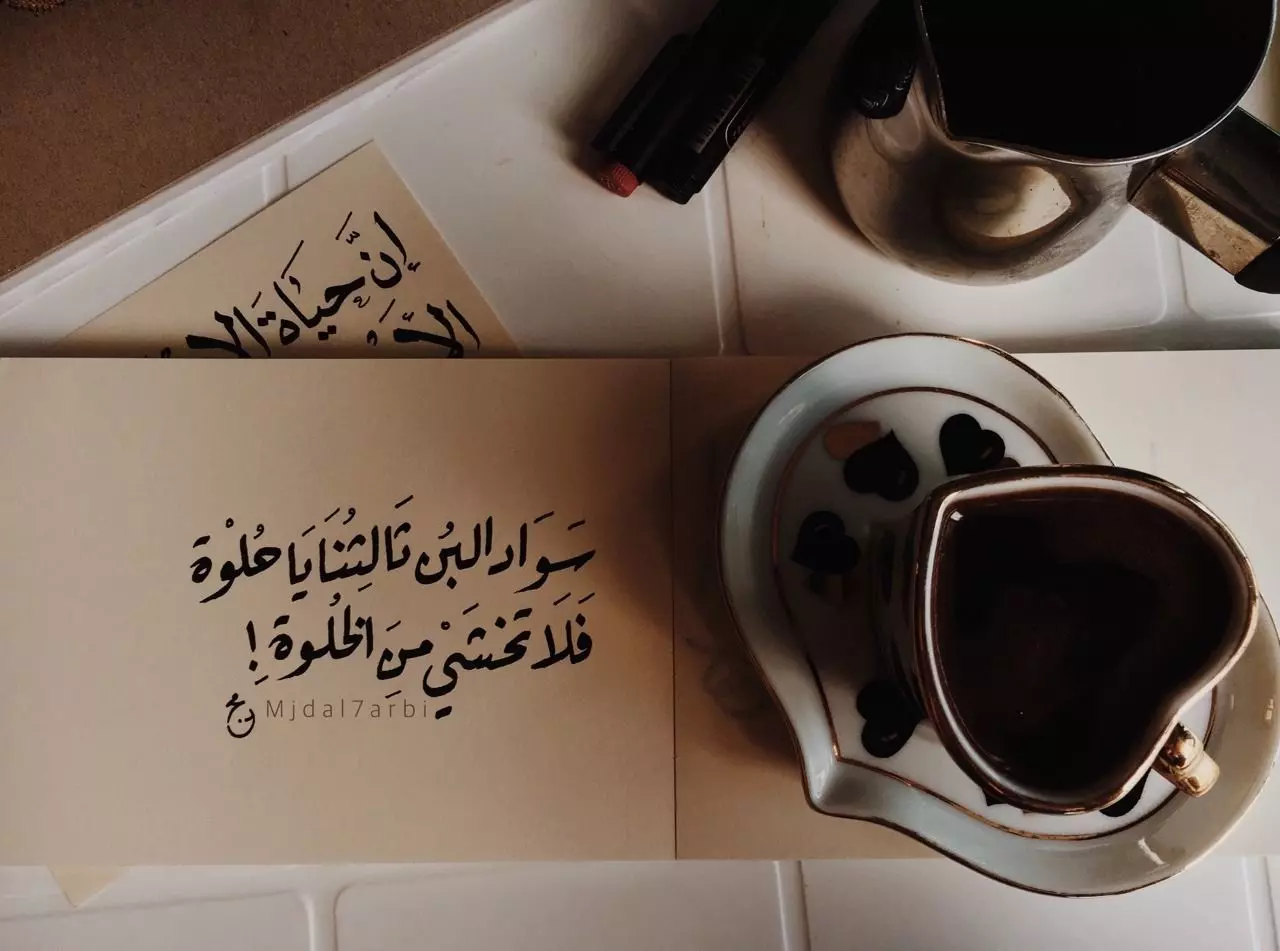 إنَّ حيَاةَ
سَوَاد البُن ثَالِثُنَا يَا حُلْوة
فَلَا تخشَيْ مِنَ الخُلوة !
Mjdal7arbi